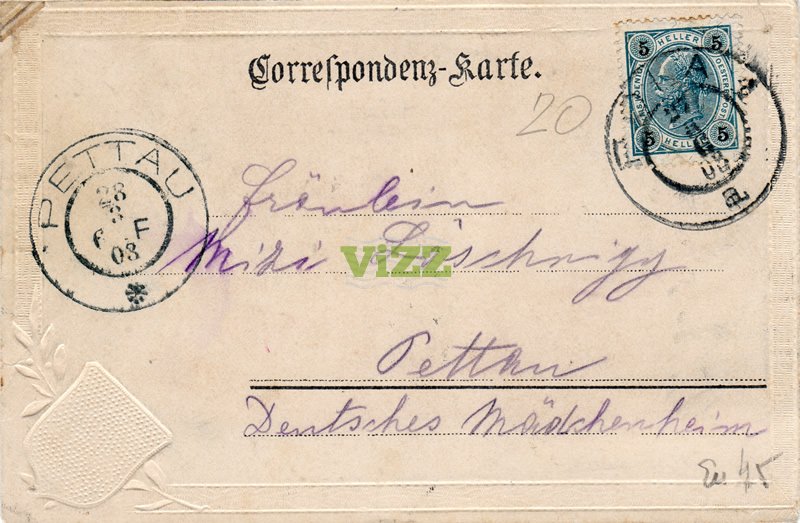 Correspondenz-Karte.
5 HELLER 5
5 HELLER 5
20
PETTAU
28
3
6 F
03
Fräulein
Mizi Löschnigg
VIZZ
Pettau
Deutsches Mädchenheim